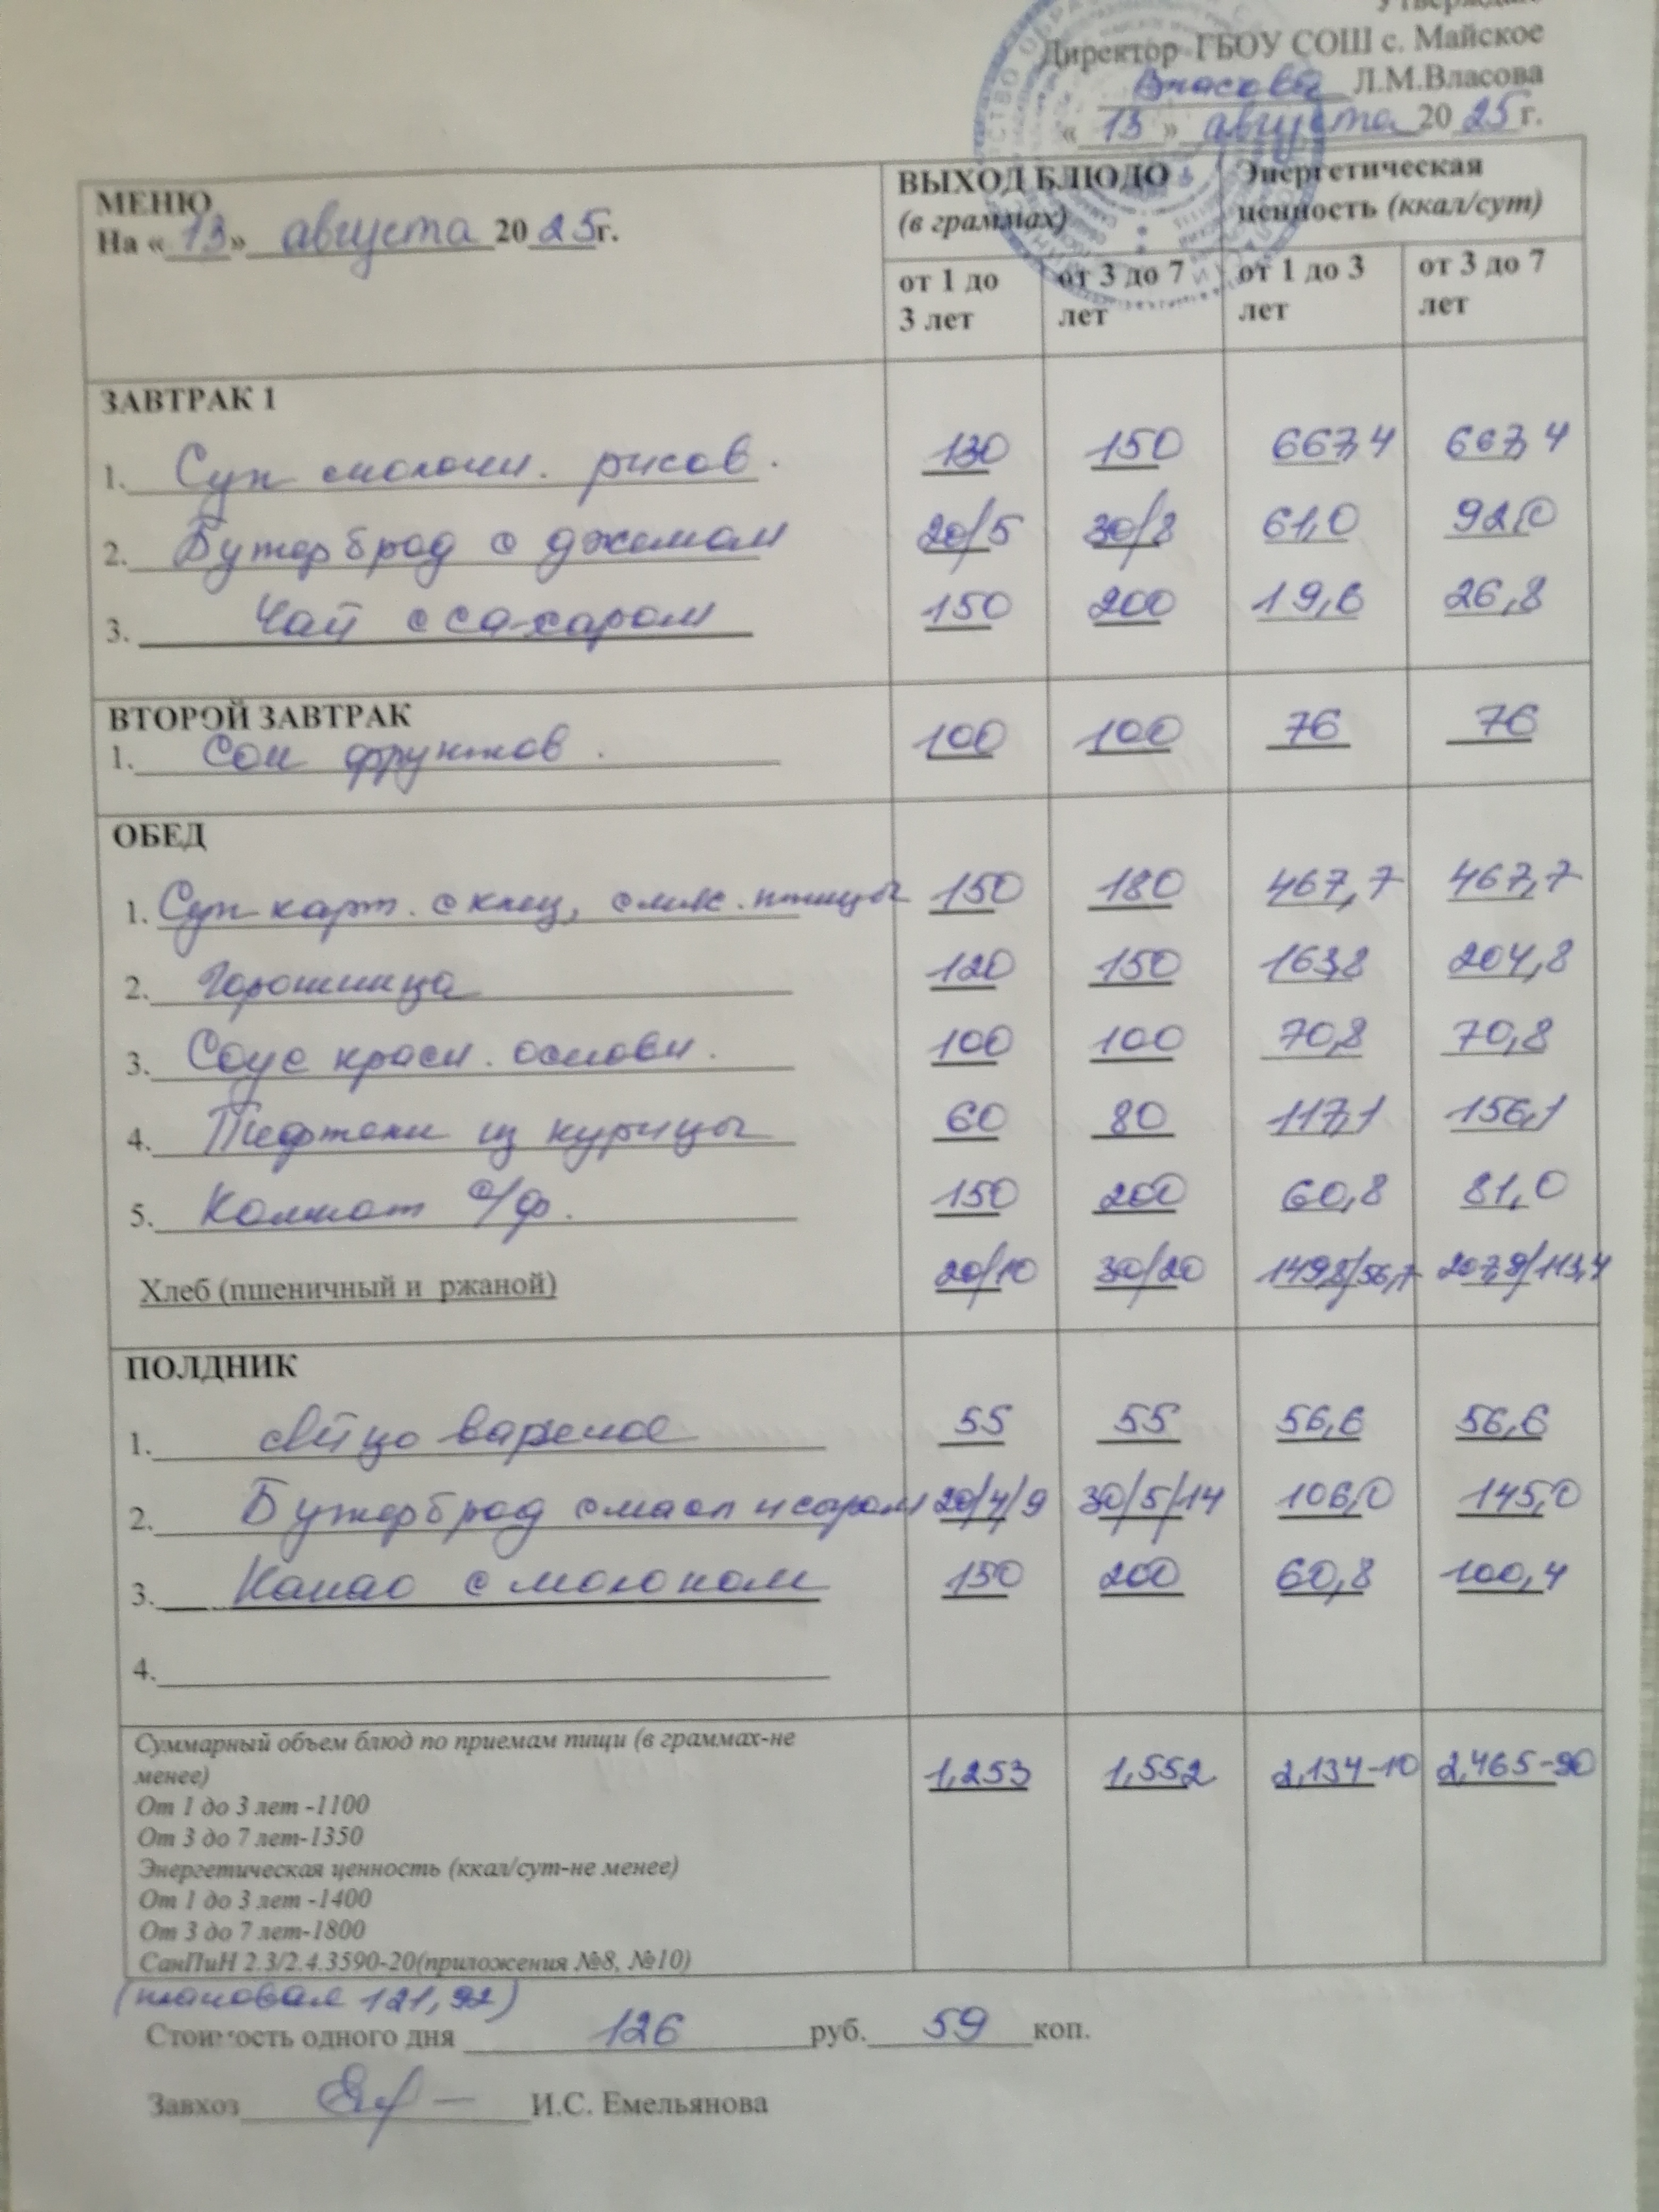 Утверждаю
Директор ГБОУ СОШ с. Майское
Власова Л.М.Власова
« 13 » августа 20 25 г.
МЕНЮ
На « 13 » августа 20 25 г.
ВЫХОД БЛЮДО (в граммах)
Энергетическая ценность (ккал/сут)
от 1 до 3 лет от 3 до 7 лет от 1 до 3 лет от 3 до 7 лет
ЗАВТРАК 1
1. Суп молочн. рисов. 130 150 667,4 667,4
2. Бутерброд с джемом 20/5 30/8 61,0 92,0
3. Чай с сахаром 150 200 19,6 26,8
ВТОРОЙ ЗАВТРАК
1. Сок фруктов. 100 100 76 76
ОБЕД
1. Суп карт. с клец, с мяс. птицы 150 180 467,7 467,7
2. Горошница 120 150 163,8 204,8
3. Соус красн. основн. 100 100 70,8 70,8
4. Тефтели из курицы 60 80 117,1 156,1
5. Компот с/ф. 150 200 60,8 81,0
Хлеб (пшеничный и ржаной) 20/10 30/20 149,8/56,7 207,9/113,4
ПОЛДНИК
1. Яйцо вареное 55 55 56,6 56,6
2. Бутерброд с масл и сыром 20/4/9 30/5/14 106,0 145,0
3. Какао с молоком 150 200 60,8 100,4
4.
Суммарный объем блюд по приемам пищи (в граммах-не 1,253 1,552 2,134-10 2,465-90
менее)
От 1 до 3 лет -1100
От 3 до 7 лет-1350
Энергетическая ценность (ккал/сут-не менее)
От 1 до 3 лет -1400
От 3 до 7 лет-1800
СанПиН 2.3/2.4.3590-20(приложения №8, №10)
(плановая 121,92)
Стоимость одного дня 126 руб. 59 коп.
Завхоз И.С. Емельянова